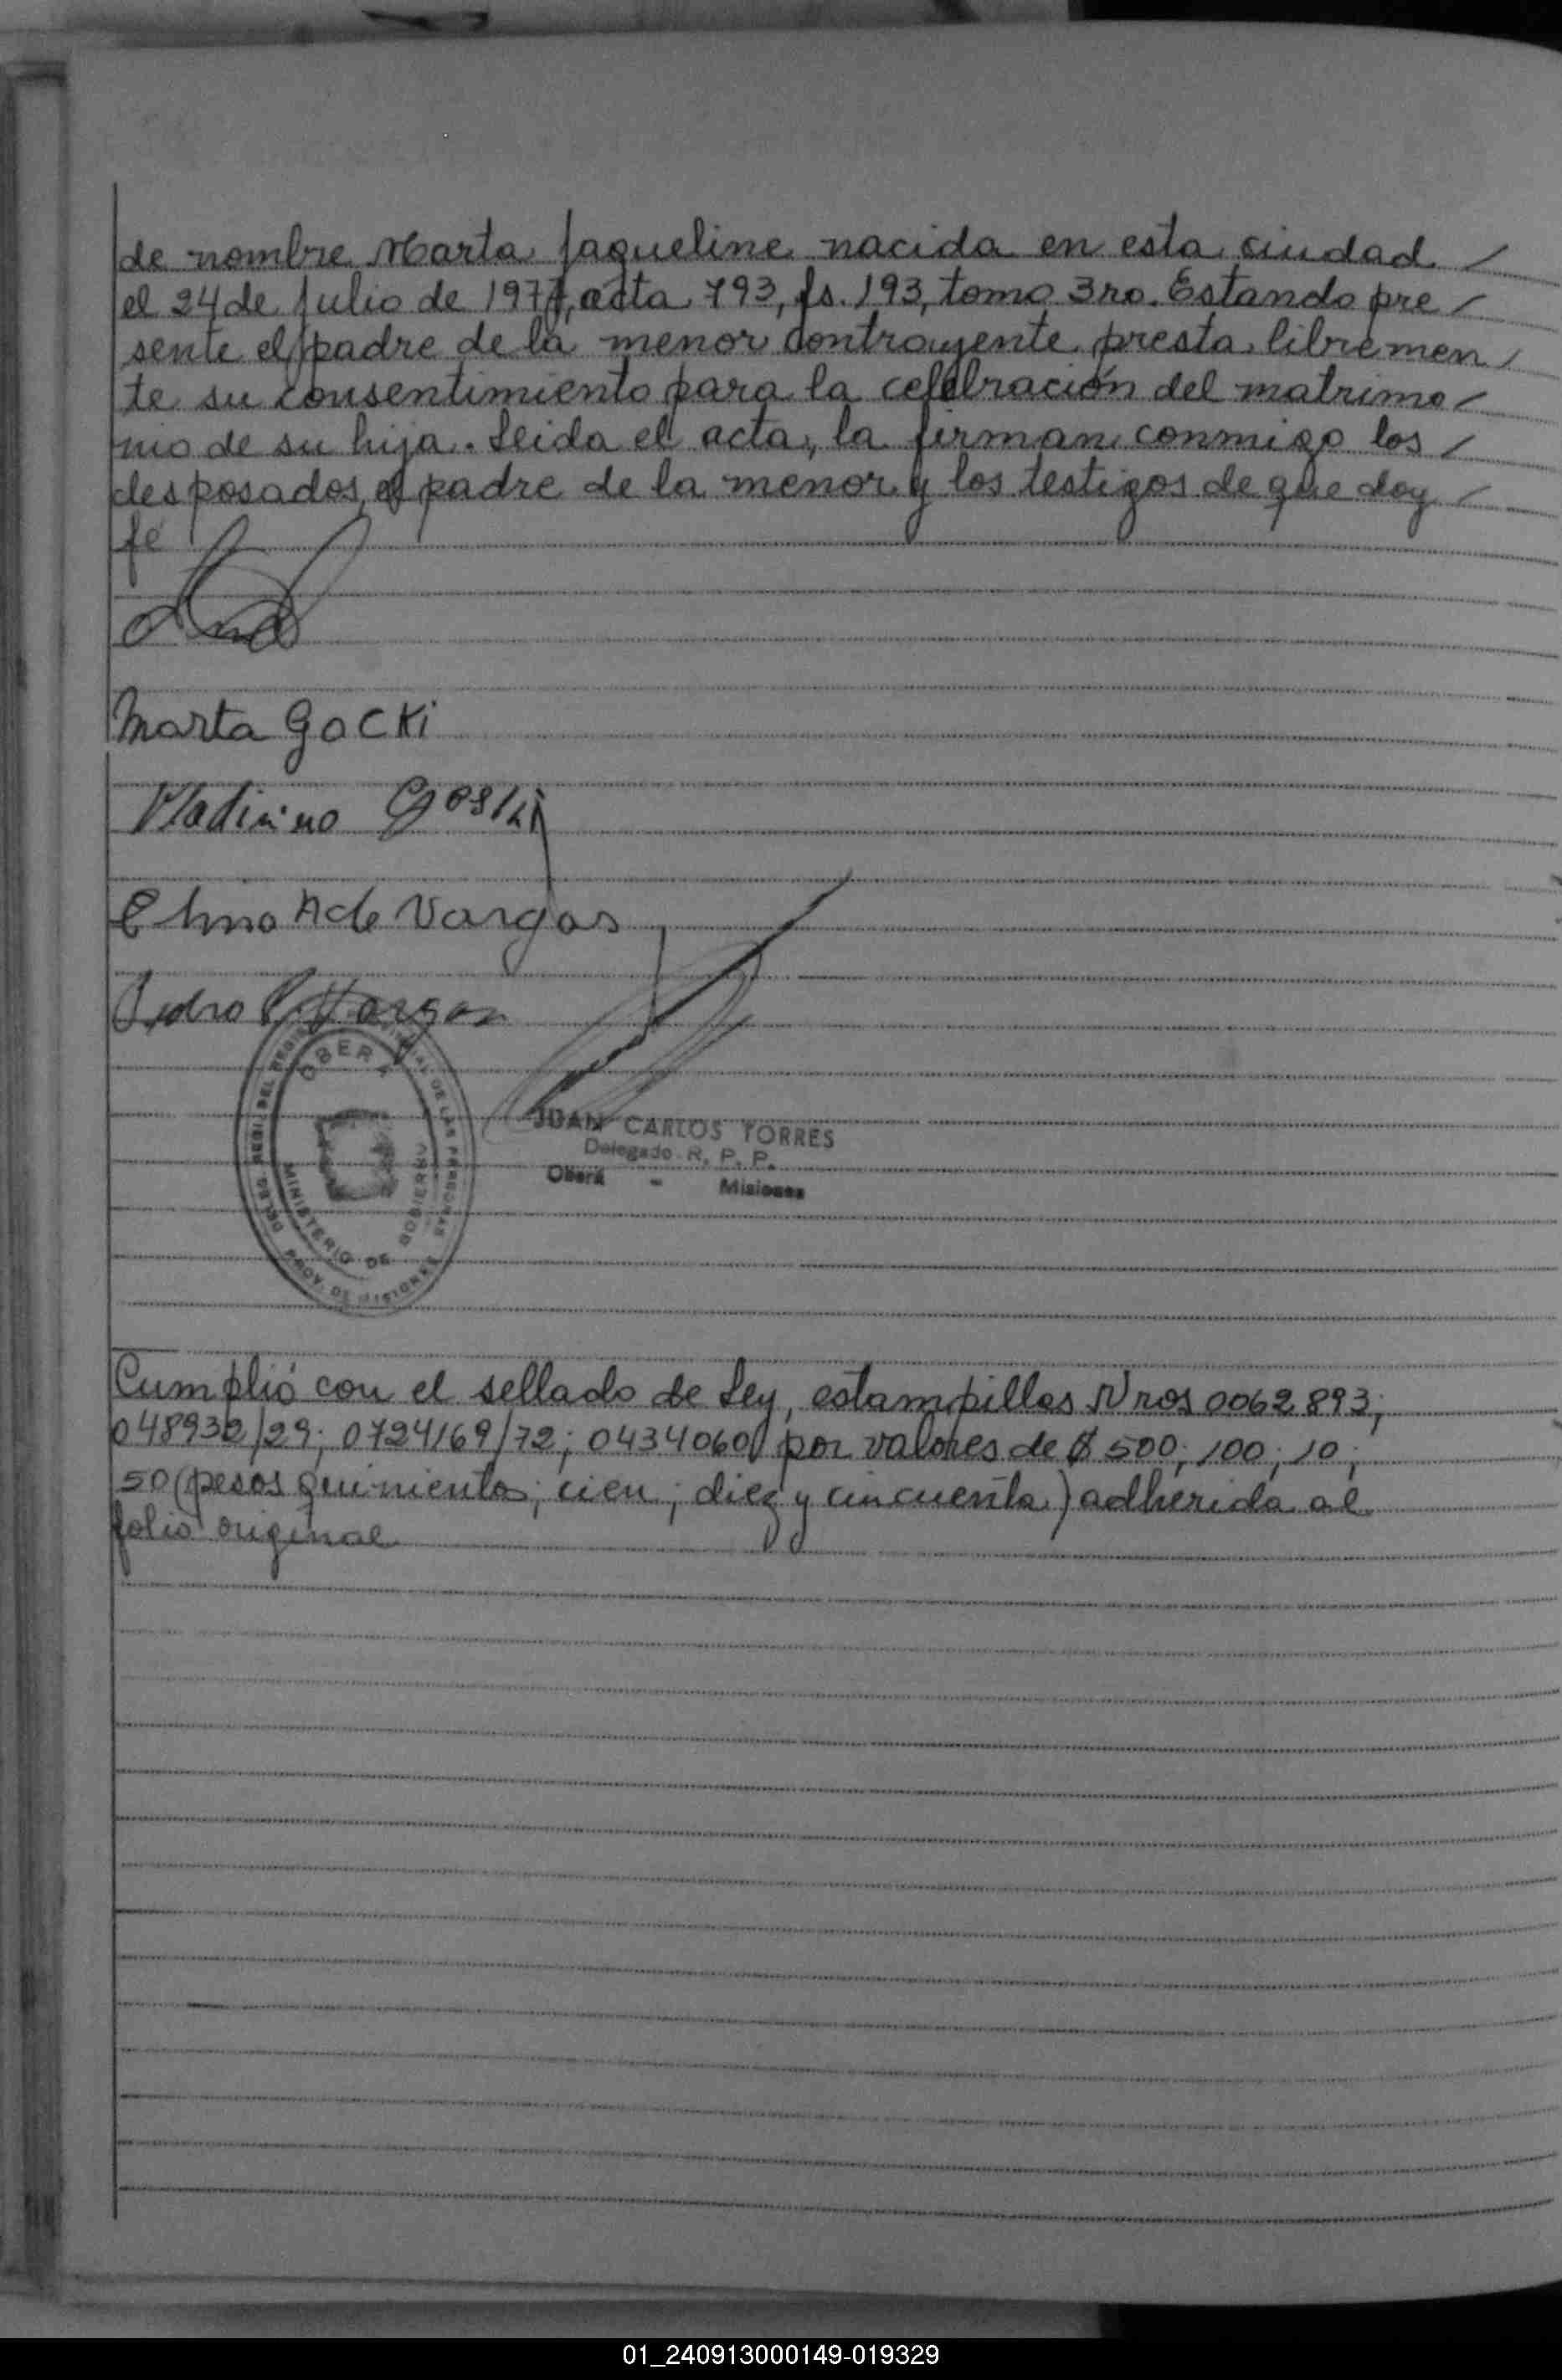 de nombre Marta Jaqueline nacida en esta ciudad /
el 24 de Julio de 1977, acta 793, fs. 193, tomo 3ro. Estando pre /
sente el padre de la menor contrayente presta libremen /
te su consentimiento para la celebración del matrimo /
nio de su hija. Leida el acta, la firman conmigo los /
desposados, el padre de la menor y los testigos de que doy /
fé
Marta Gocki
Vladimino
de Vargas
Pedro Vargas
OBERA
MINISTERIO DE GOBIERNO
PROV. DE MISIONES
JUAN CARLOS TORRES
Delegado R. P. P.
Oberá - Misiones
Cumplió con el sellado de Ley, estampillas Nros 0062893;
048932/29; 0724169/72; 0434060 por valores de $ 500; 100; 10;
50 (pesos quinientos; cien; diez y cincuenta) adherida al
folio original
01_240913000149-019329